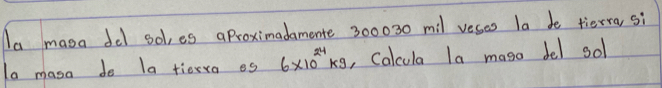 la masa del sol, es aproximadamente 300030 mil veses la de tierra, si
la masa de la tierra es 6x10²⁴ kg, Calcula la masa del sol